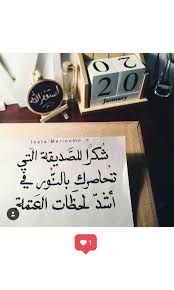 استغفر الله
20
January
Insta.Marioomo_e
شكرًا للصَّديقة الّتي
تُحاصرك بالنّور في
أشدّ لَحظَات العَتمة
1